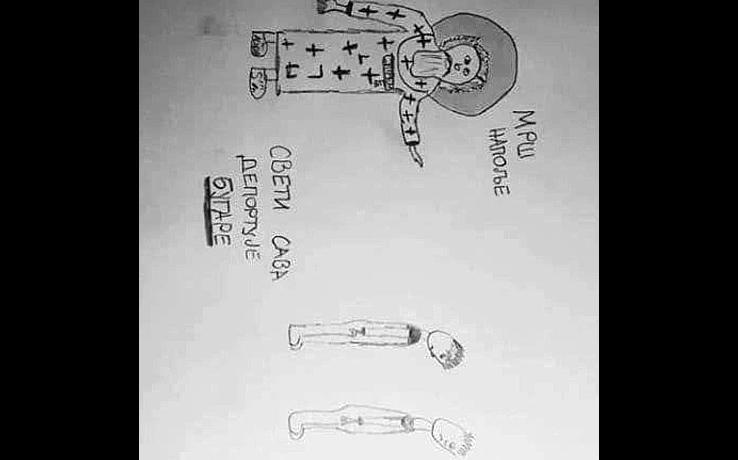 МРШ
НАПОЉЕ
СВЕТИ САВА
ДЕПОРТУЈЕ
БУГАРЕ